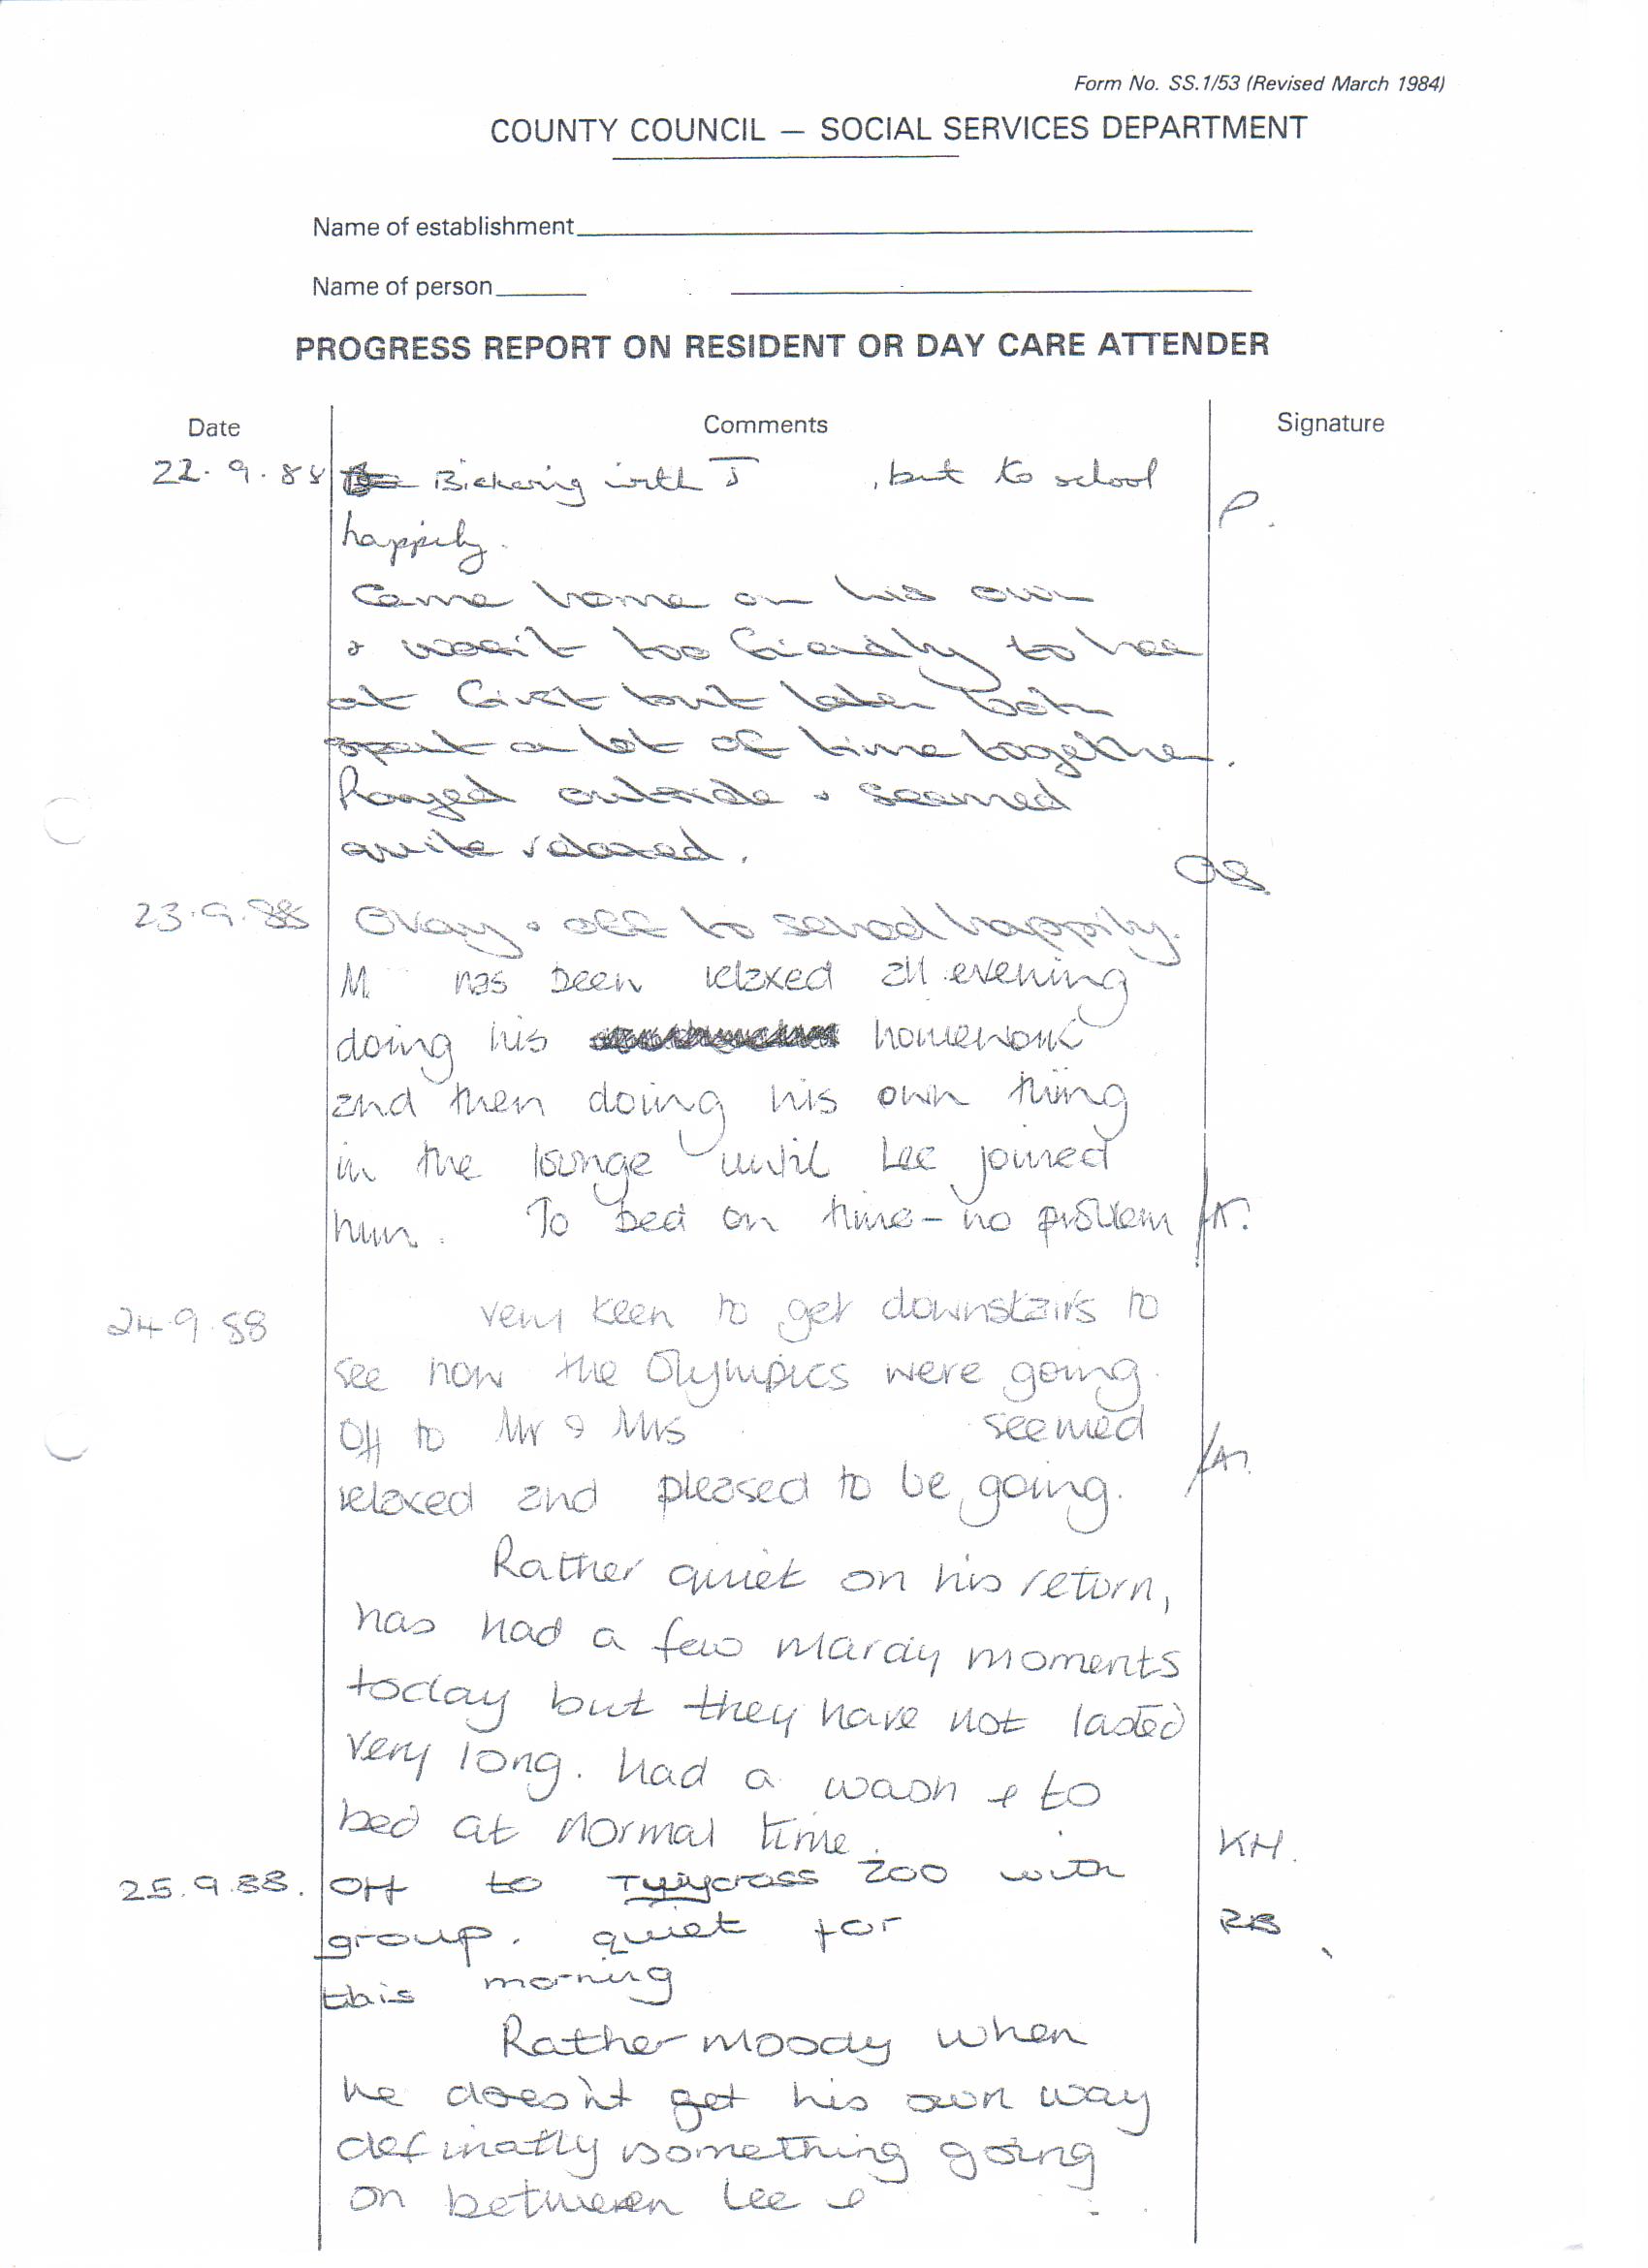 Form No. SS.1/53 (Revised March 1984)
COUNTY COUNCIL — SOCIAL SERVICES DEPARTMENT
Name of establishment
Name of person
PROGRESS REPORT ON RESIDENT OR DAY CARE ATTENDER
Date Comments Signature
22.9.88 Bickering with J , but to school
happily. P.
Came home on his own
& wasn't too friendly to Lee
at first but later both
spent a lot of time together.
Played outside & seemed
quite relaxed.
23.9.88 Okay & off to school happily.
M has been relaxed all evening
doing his homework
and then doing his own thing
in the lounge until Lee joined
him. To bed on time - no problem
24.9.88 very keen to get downstairs to
see how the Olympics were going.
Off to Mr & Mrs seemed
relaxed and pleased to be going.
Rather quiet on his return,
has had a few mardy moments
today but they have not lasted
very long. had a wash & to
bed at normal time. KH.
25.9.88. Off to Twycross Zoo with
group. quiet for RB
this morning
Rather moody when
he doesn't get his own way
definatly something going
on between Lee &